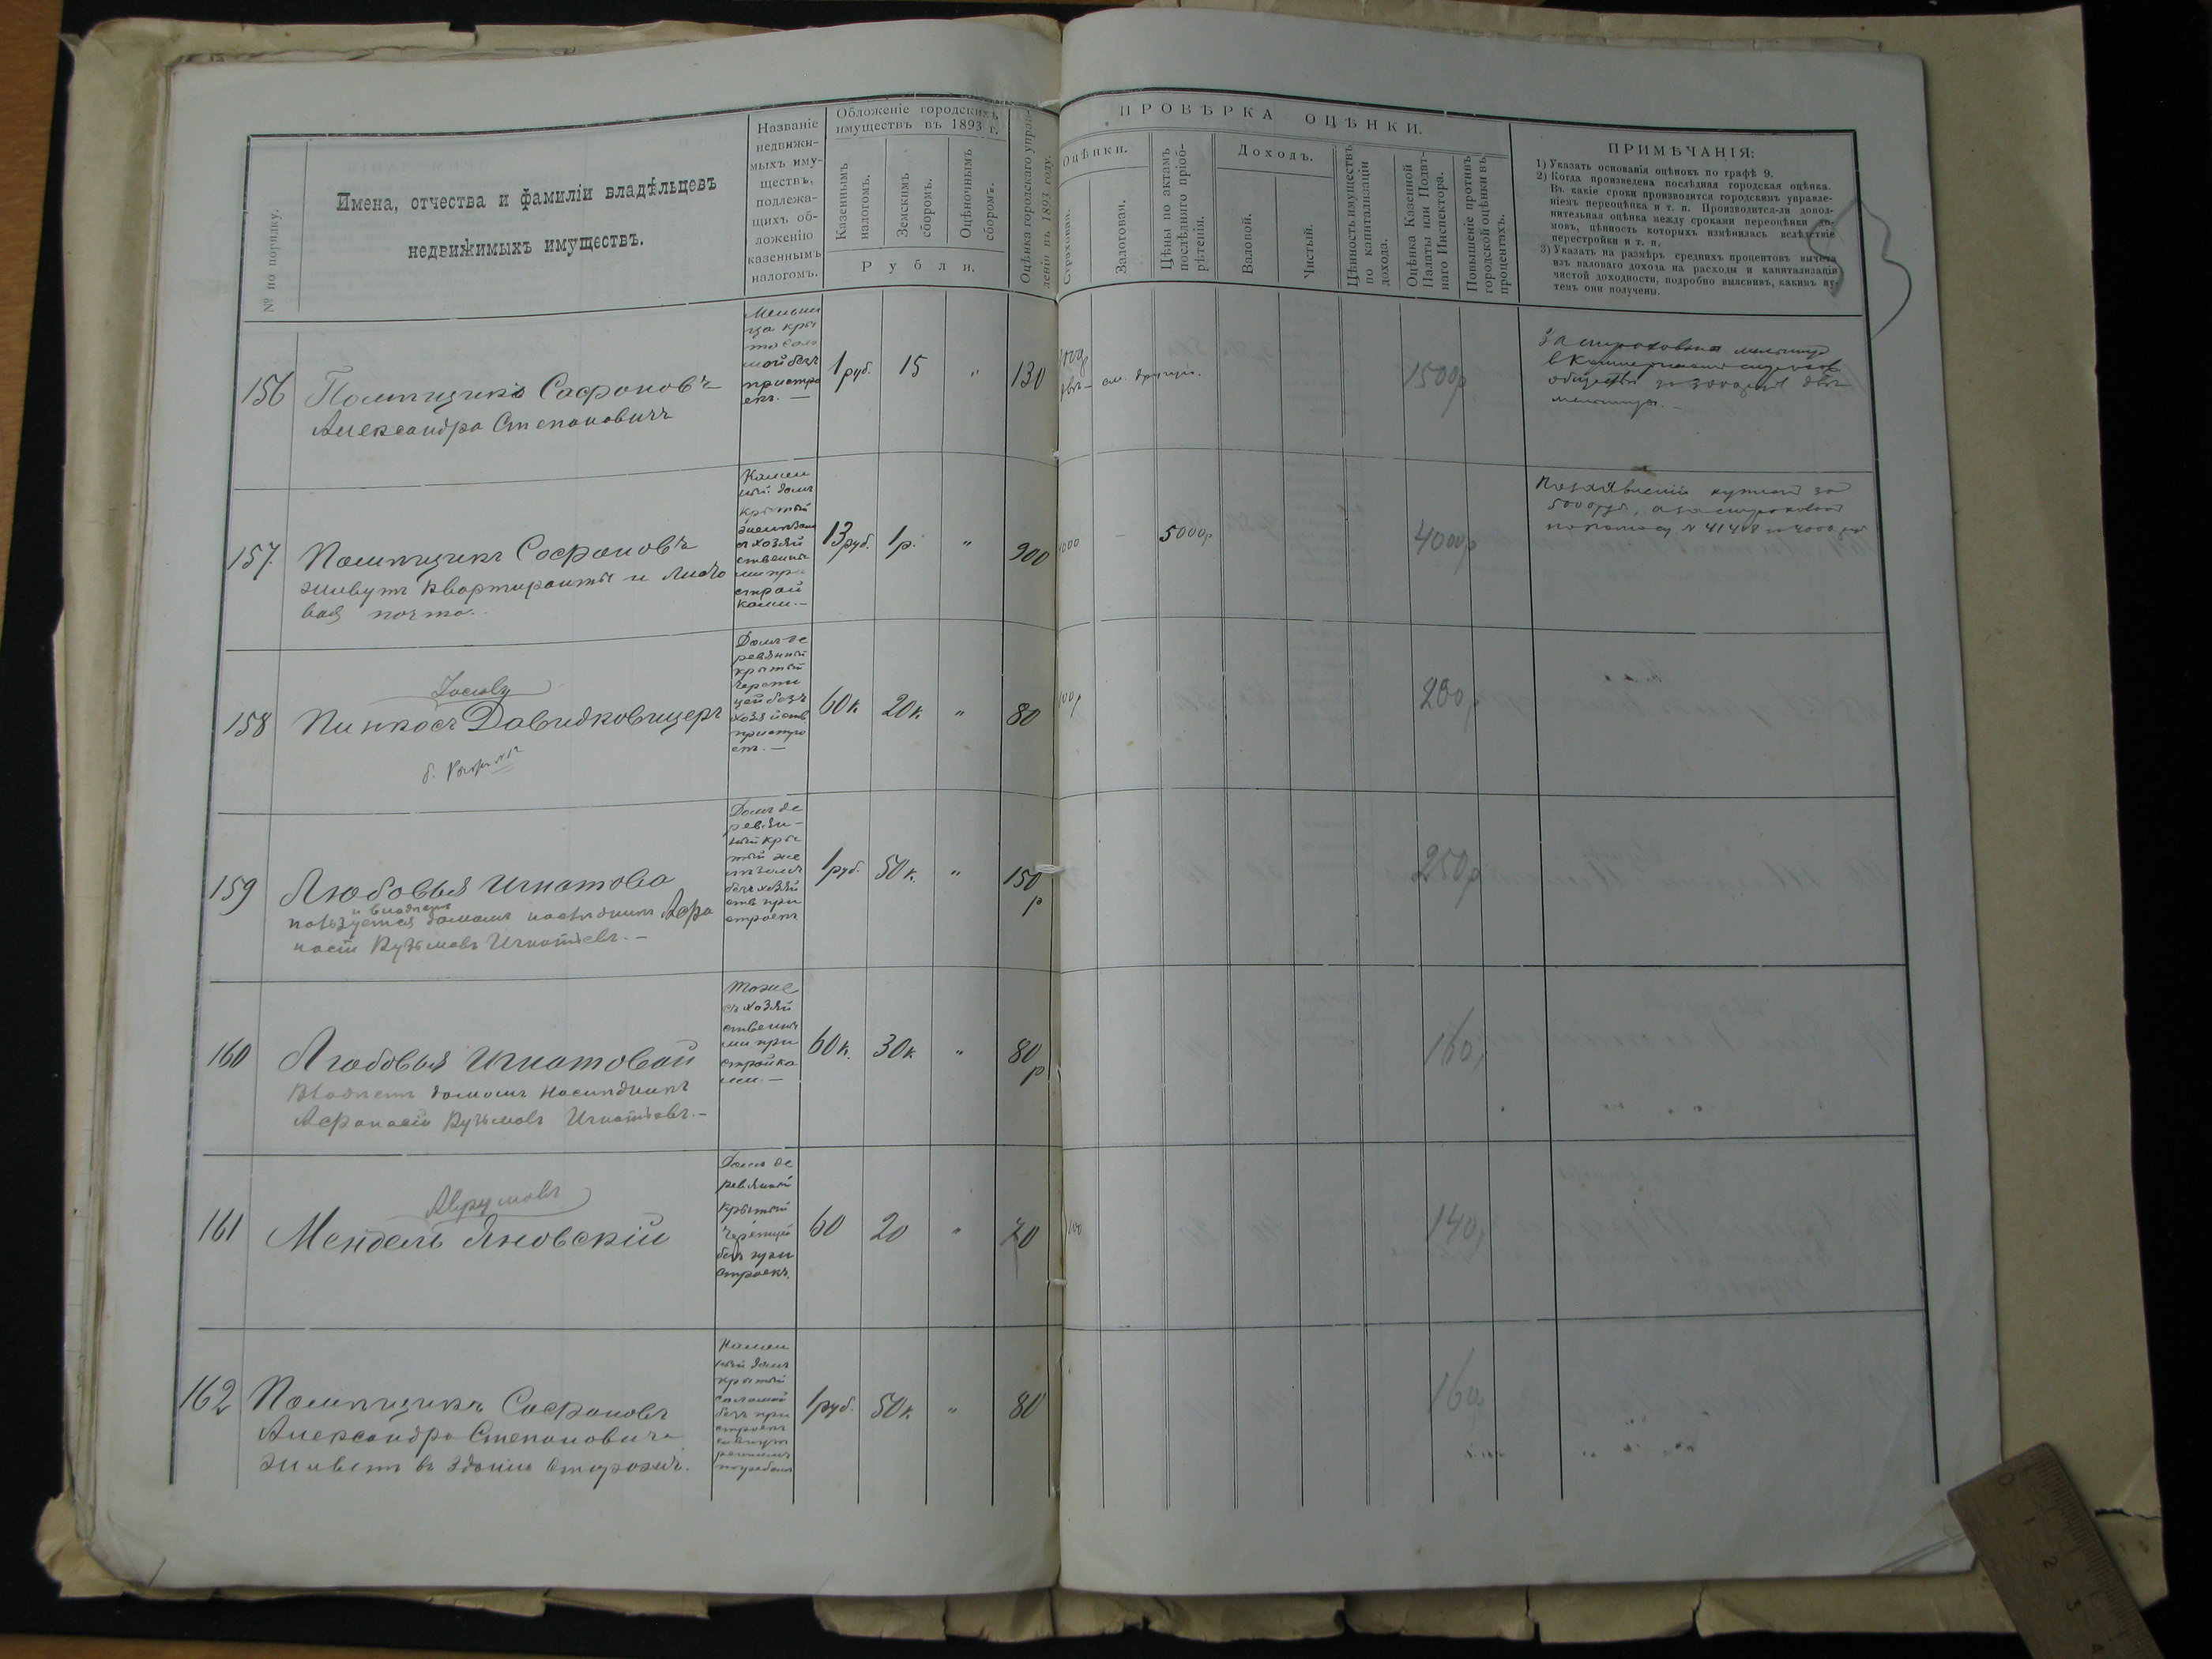 № по порядку.
Имена, отчества и фамиліи владѣльцевъ
недвижимыхъ имуществъ.
Названіе
недвижи-
мыхъ иму-
ществъ,
подлежа-
щихъ об-
ложенію
казеннымъ
налогомъ.
Обложеніе городскихъ
имуществъ въ 1893 г.
Казеннымъ
налогомъ.
Земскимъ
сборомъ.
Оцѣночнымъ
сборомъ.
Рубли.
Оцѣнка городскаго управ-
ленія въ 1893 году.
ПРОВѢРКА ОЦѢНКИ.
Оцѣнки.
Страховая.
Залоговая.
Цѣны по актамъ
послѣдняго пріоб-
рѣтенія.
Доходъ.
Валовой.
Чистый.
Цѣнность имуществъ
по капитализаціи
дохода.
Оцѣнка Казенной
Палаты или Подат-
наго Инспектора.
Повышеніе противъ
городской оцѣнки въ
процентахъ.
ПРИМѢЧАНІЯ:
1) Указать основанія оцѣнокъ по графѣ 9.
2) Когда произведена послѣдняя городская оцѣнка.
Въ какіе сроки производится городскимъ управле-
ніемъ переоцѣнка и т. п. Производится-ли допол-
нительная оцѣнка между сроками переоцѣнки до-
мовъ, цѣнность которыхъ измѣнилась вслѣдствіе
перестройки и т. п.
3) Указать на размѣръ среднихъ процентовъ вычета
изъ валоваго дохода на расходы и капитализаціи
чистой доходности, подробно выяснивъ, какимъ пу-
темъ они получены.
156
Помѣщикъ Сафоновъ
Александра Степановичъ
Мельни
ца кры
та соло
мой безъ
пристро
екъ. —
1 руб.
15
"
130
1500р
застрахована мельница
обществѣ за 3000 руб двѣ
мельницы. —
157.
Помѣщикъ Сафоновъ
живутъ квартиранты и
вая почта.
Камен
ный домъ
крытый
желѣзомъ
съ хозяй
ственны
ми при
строй
ками. —
13 руб.
1 р.
"
900
4000
—
5000р
4000р
купленъ за
5000 руб, а застрахованъ
по полису N 41418 въ 4000 руб
158
Пинкосъ Давидковицеръ
Домъ де
ревяный
крытый
черепи
цей безъ
хозяйств
пристро
екъ. —
60 к.
20 к.
"
80
200р
159
Любовья Игнатова
и владѣетъ
пользуется домомъ наслѣдникъ Афа
насій Кузьмовъ Игнатьевъ. —
Домъ де
ревян-
ный кры
тый же
лѣзомъ
безъ хозяй
ств при
строекъ
1 руб.
50 к.
"
150
р
250р
160
Любовья Игнатовой
Владѣетъ домомъ наслѣдникъ
Афанасій Кузьмовъ Игнатьевъ. —
тоже
съ хозяй
ственны
ми при
стройка
ми. —
60 к.
30 к.
"
80
р
160р
161
Аврумовъ
Мендель Яновскій
Домъ де
ревяный
крытый
черепицей
безъ при
строекъ.
60
20
"
70
100
140р
162
Помѣщикъ Сафоновъ
Александра Степановича
живетъ въ зданіи сторожъ.
Камен
ный домъ
крытый
соломой
безъ при
строекъ
1 руб.
50 к.
"
80
160р
0 1 2 3 4